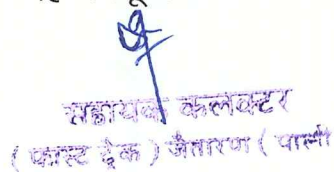 सहायक कलक्टर
( फास्ट ट्रेक ) जैतारण ( पाली